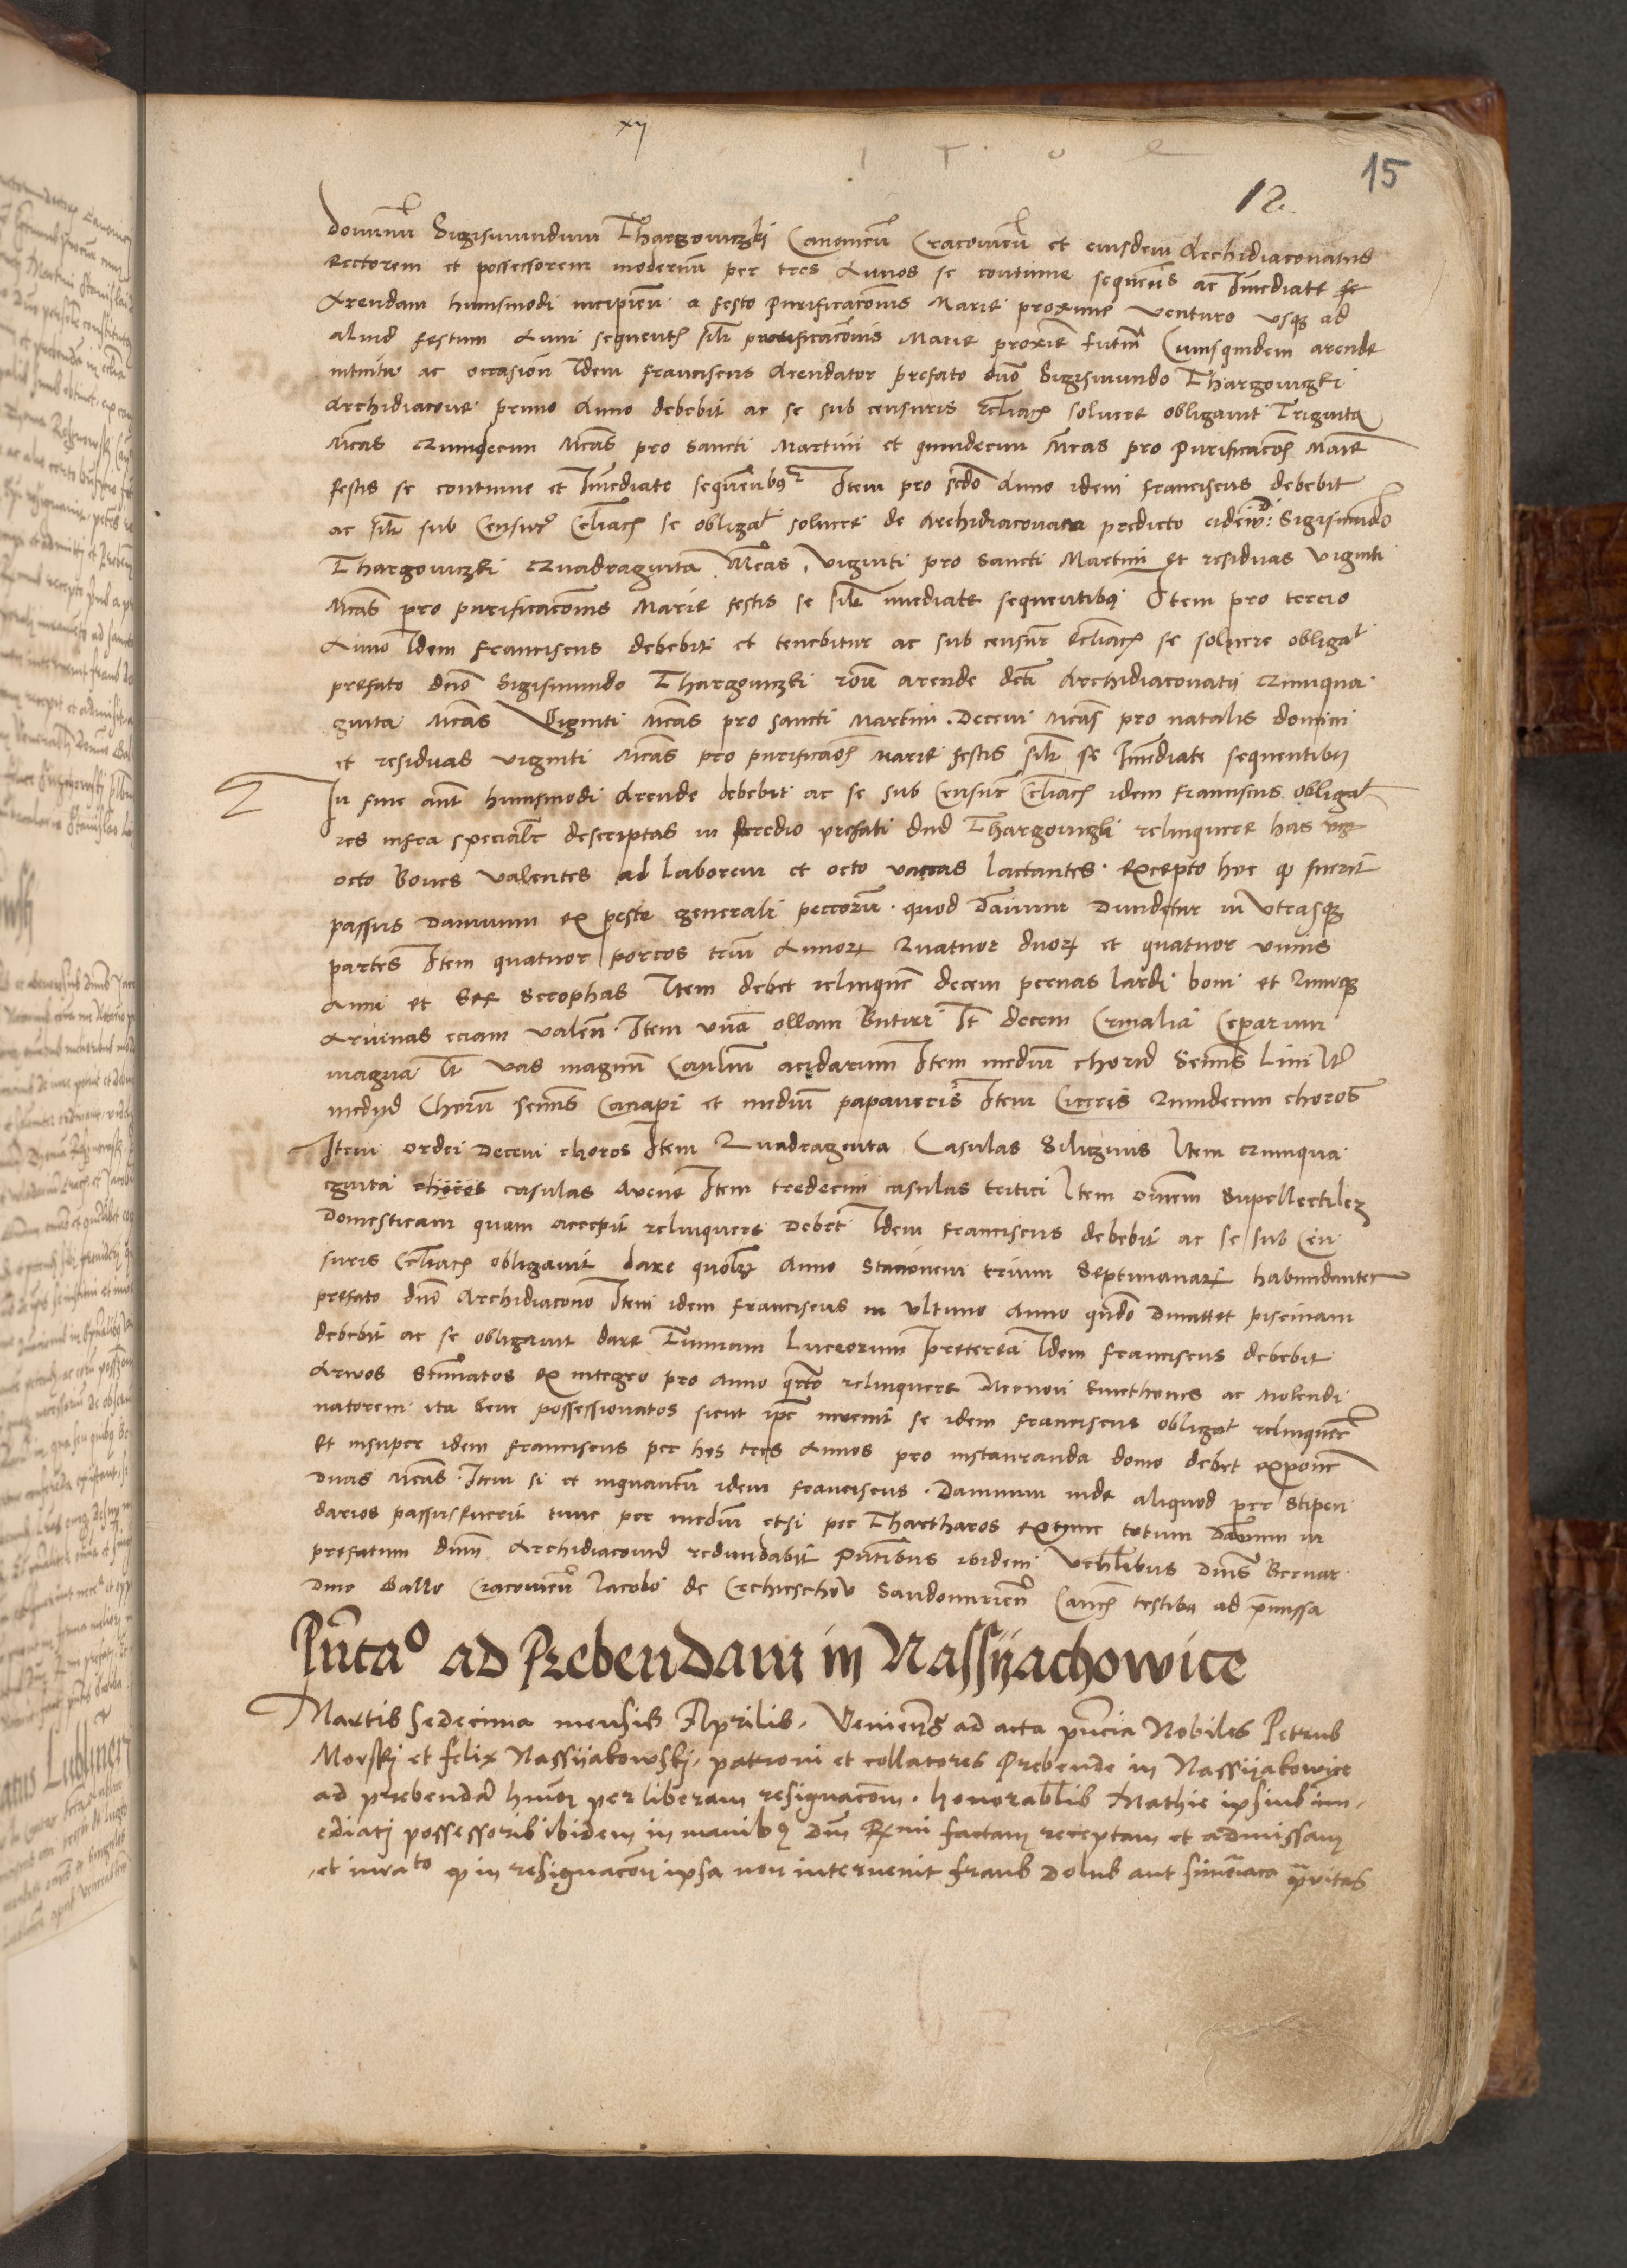 xij
15
12.
dominum Sigismundum Thargowiczki Canonicum Cracovien et eiusdem Archidiaconatus
Rectorem et possessorem modernum per tres Annos se continue sequentes ac Immediate
Arendam huiusmodi incipien a festo purificacionis Marie proxime venturo vsque ad
aliud festum Anni sequentis similiter purificacionis Marie proxime futurum Cuiusquidem arende
intuitu ac occasione Idem franciscus Arendator prefato domino Sigismundo Thargowiczki
Archidiacono primo Anno debebit ac se sub censuris Ecclesiasticis soluere obligauit Triginta
Mrcas Quindecim Mrcas pro sancti Martini et quindecim Mrcas pro purificacionis Marie
festis se continue et Immediate sequentibus Item pro secundo Anno idem franciscus debebit
ac similiter sub Censuris Ecclesiasticis se obligat soluere de Archidiaconatu predicto eidem d: Sigismundo
Thargowiczki Quadraginta Mrcas, viginti pro sancti Martini et residuas viginti
Mrcas pro purificacionis Marie festis se similiter immediate sequentibus Item pro tercio
Anno Idem franciscus debebit et tenebitur ac sub censuris Ecclesiasticis se soluere obligat
prefato domino Sigismundo Thargowiczki racione arende dicti Archidiaconatus Quinqua
ginta Mrcas Viginti Mrcas pro sancti Martini. Decem Mrcas pro natalis domini
et residuas viginti Mrcas pro purificacionis Marie festis similiter se Immediate sequentibus
In fine autem huiusmodi Arende debebit ac se sub Censuris Ecclesiasticis idem franciscus obligat
res infra specialiter descriptas in predio prefati domini Thargowiczki relinquere has videlicet
octo Boues valentes ad laborem et octo vaccas lactantes. excepto hoc quod fuerit
passus damnum ex peste generali peccorum. quod damnum diuidetur in vtrasque
partes Item quatuor porcos trium Annorum Quatuor duorum et quatuor vnius
Anni et Sex Scrophas Item debet relinquere decem pernas lardi boni et Quinque
Aruinas eciam valen. Item vnam ollam Butiri It decem Crinalia Ceparum
magna It vas magnum Caulium acidarum Item medium chorum Seminis Lini It
medium Chorum seminis Canapi et medium papaueris Item Ciceris Quindecim choros
Item ordei Decem choros Item Quadraginta Casulas Siliginis Item Quinqua
ginta choros casulas Avene Item tredecim casulas tritici Item omnem supellectilem
Domesticam quam accepit relinquere debet Idem franciscus debebit ac se sub Cen
suris Ecclesiasticis obligauit dare quolibet Anno Stacionem trium Septimanarum habundanter
prefato domino Archidiacono Item idem franciscus in vltimo Anno quando dimittet piscinam
debebit ac se obligauit dare Tunnam Luceorum preterea Idem franciscus debebit
Aruos seminatos ex integro pro Anno quarto relinquere Necnon kmethones ac Molendi
natorem ita bene possessionatos sicut ipse inuenit se idem franciscus obligat relinquere
et insuper idem franciscus per hos tres Annos pro instauranda domo debet exponere
duas Mrcas. Item si et inquantum idem franciscus. Damnum inde aliquod per stipen
darios passus fuerit tunc per medium etsi per Thartharos extunc totum Damnum in
prefatum dominum Archidiaconum redundabit Presentibus ibidem Venerabilibus dominis Bernar
dino Gallo Cracovien Iacobo de Crchieschow Sandomirien Canonicis testibus ad premissa
Pñtao ad Prebendam in Nassijachowice
Martis sedecima mensis Aprilis. Veniens ad acta pñcia Nobiles Petrus
Morski et felix Nassijakowski, patroni et collatores Prebende in Nassijakowice
ad prebendam huiusmodi per liberam resignacionem. honorabilis Mathie ipsius im,
ediati possessoris ibidem in manibus dñi Rmi factam receptam et admissam
et iurato quod in resignacione ipsa non interuenit fraus dolus aut simoniaca prauitas